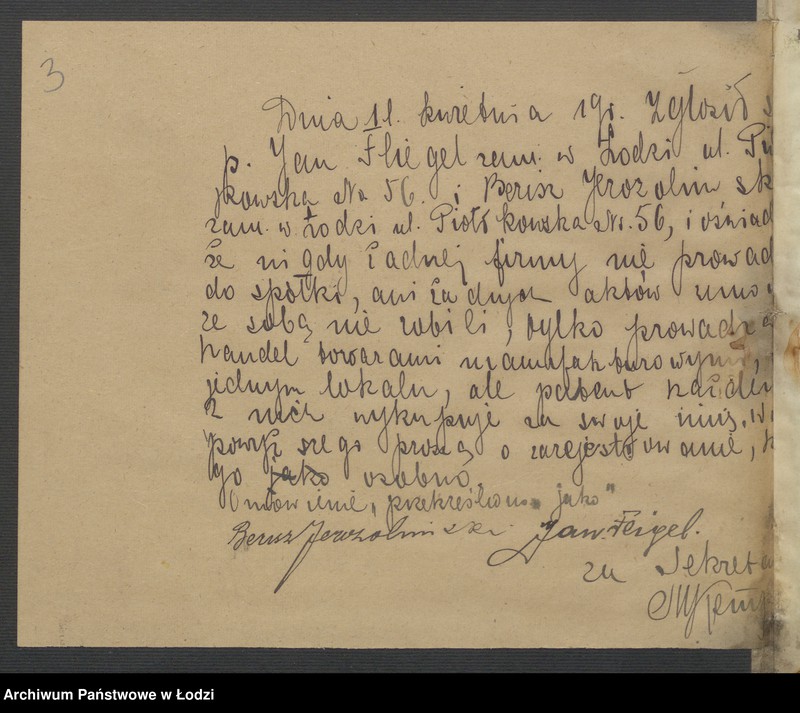 3
Dnia 11. kwietnia 19r. Zgłosił s
p. Jan Fliegel zam. w Łodzi ul. Pio
rkowska No 56. i Berisz Jerozolim sk
zam. w Łodzi ul. Piotrkowska Nr. 56, i oświad
że nigdy żadnej firmy nie prowad
do spółki, ani żadnych aktów umo
ze sobą nie robili, tylko prowadzą
handel towarami manufakturowymi,
jednym lokalu, ale patent każden
z nich wykupuje na swoje imię. W
powyższego proszą o zarejestrowanie, k
go jako osobno.
Omówienie, "przekreślono jako"
Berisz Jerozolimski Jan Fligel.
za Sekreta